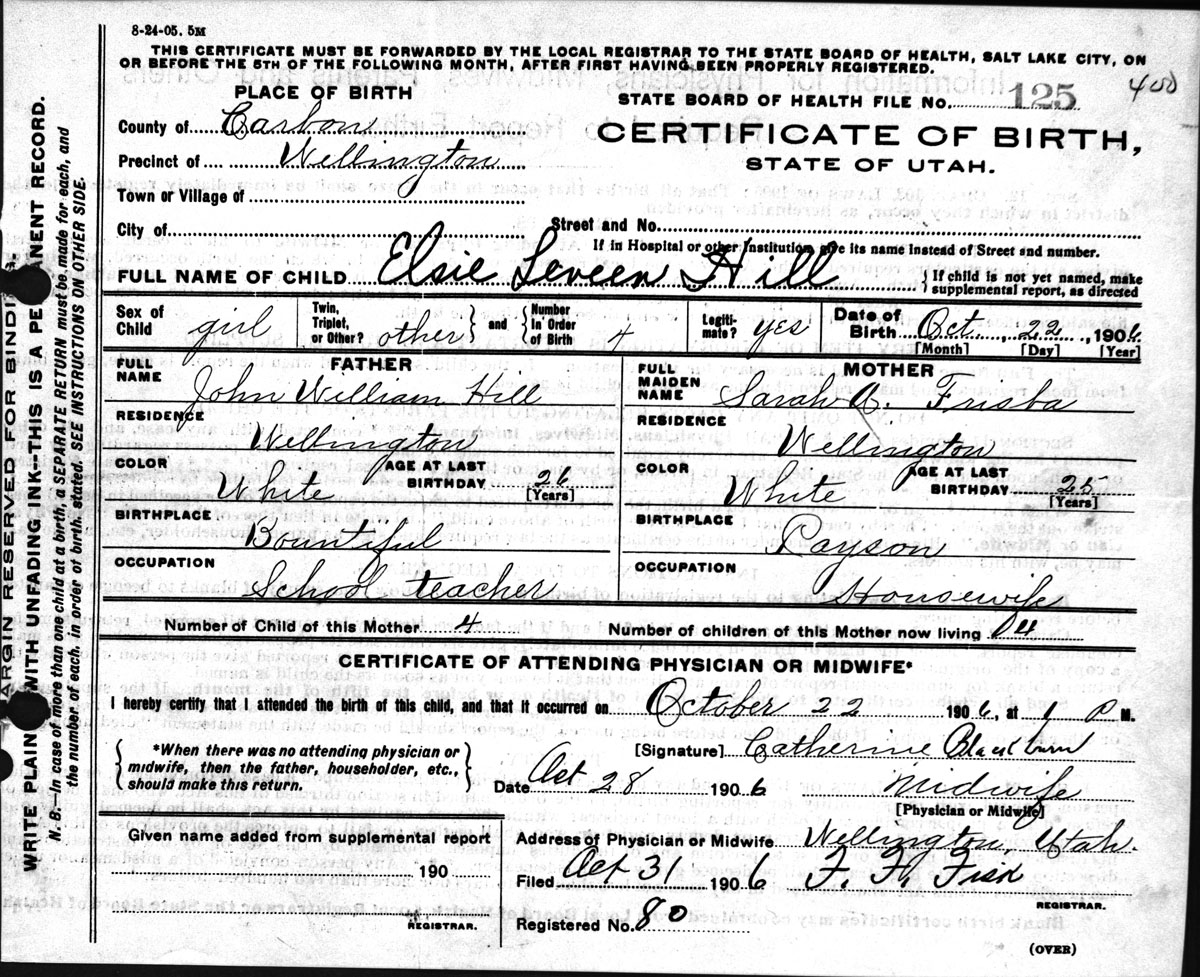 8-24-05. 5M
THIS CERTIFICATE MUST BE FORWARDED BY THE LOCAL REGISTRAR TO THE STATE BOARD OF HEALTH, SALT LAKE CITY, ON
OR BEFORE THE 5TH OF THE FOLLOWING MONTH, AFTER FIRST HAVING BEEN PROPERLY REGISTERED.
PLACE OF BIRTH
STATE BOARD OF HEALTH FILE No. 125 400
County of Carbon
CERTIFICATE OF BIRTH,
Precinct of Wellington
STATE OF UTAH.
Town or Village of
City of Street and No.
If in Hospital or other Institution, give its name instead of Street and number.
FULL NAME OF CHILD Elsie Leveen Hill { If child is not yet named, make supplemental report, as directed
Sex of Child girl Twin, Triplet, or Other? other } and { Number in Order of Birth 4 Legiti-mate? yes Date of Birth Oct., 22, 1906
[Month] [Day] [Year]
FATHER
FULL NAME John William Hill
RESIDENCE
Wellington
COLOR White AGE AT LAST BIRTHDAY 26
[Years]
BIRTHPLACE
Bountiful
OCCUPATION
School teacher
MOTHER
FULL MAIDEN NAME Sarah
RESIDENCE
Wellington
COLOR White AGE AT LAST BIRTHDAY 25
[Years]
BIRTHPLACE
Payson
OCCUPATION
Housewife
Number of Child of this Mother 4 Number of children of this Mother now living 4
CERTIFICATE OF ATTENDING PHYSICIAN OR MIDWIFE*
I hereby certify that I attended the birth of this child, and that it occurred on October 22 1906, at 1 P M.
{ *When there was no attending physician or
midwife, then the father, householder, etc.,
should make this return. }
[Signature] Catherine Blackburn
Date Oct 28 1906 Midwife
[Physician or Midwife]
Given name added from supplemental report
190
REGISTRAR.
Address of Physician or Midwife Wellington, Utah.
Filed Oct 31 1906 F. F. Fisk
REGISTRAR.
Registered No. 80
(OVER)
ARGIN RESERVED FOR BINDI
WRITE PLAIN WITH UNFADING INK--THIS IS A PE ANENT RECORD.
N. B. In case of more than one child at a birth, a SEPARATE RETURN must be made for each, and
the number of each, in order of birth, stated. SEE INSTRUCTIONS ON OTHER SIDE.